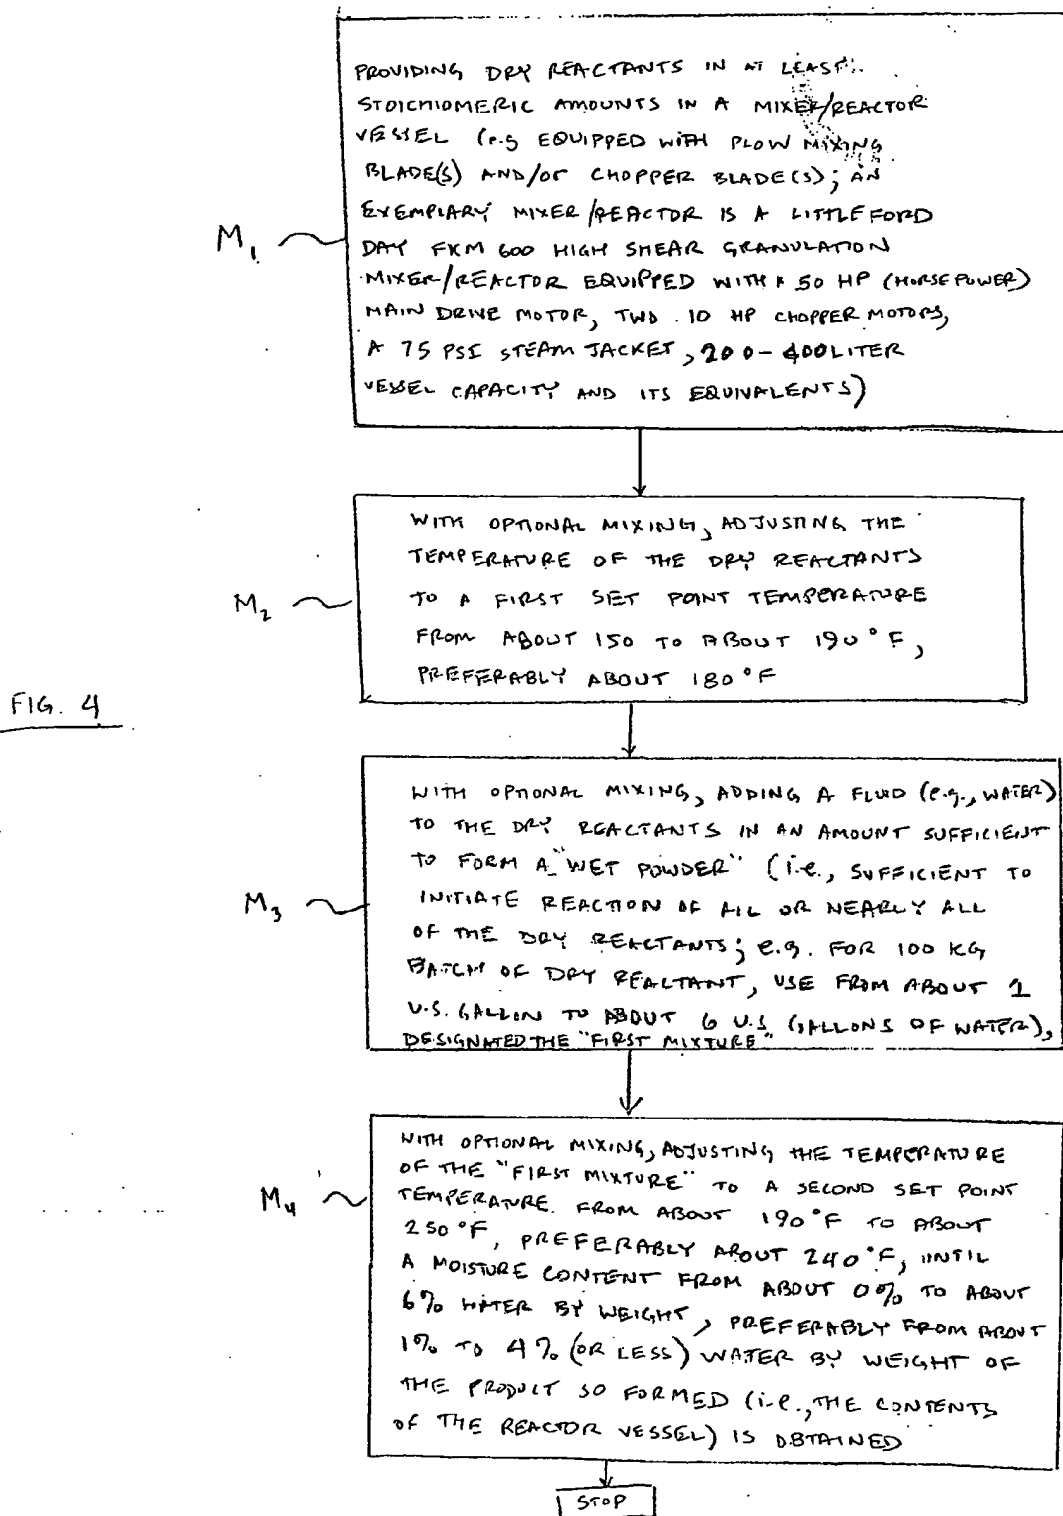 PROVIDING DRY REACTANTS IN AT LEAST
STOICHIOMERIC AMOUNTS IN A MIXER/REACTOR
VESSEL (e.g EQUIPPED WITH PLOW MIXING
BLADE(S) AND/OR CHOPPER BLADE(S); AN
EXEMPLARY MIXER/REACTOR IS A LITTLEFORD
DAY FKM 600 HIGH SHEAR GRANULATION
MIXER/REACTOR EQUIPPED WITH A 50 HP (HORSEPOWER)
MAIN DRIVE MOTOR, TWO 10 HP CHOPPER MOTORS,
A 75 PSI STEAM JACKET, 200-400 LITER
VESSEL CAPACITY AND ITS EQUIVALENTS)
M1
WITH OPTIONAL MIXING, ADJUSTING THE
TEMPERATURE OF THE DRY REACTANTS
TO A FIRST SET POINT TEMPERATURE
FROM ABOUT 150 TO ABOUT 190°F,
PREFERABLY ABOUT 180°F
M2
FIG. 4
WITH OPTIONAL MIXING, ADDING A FLUID (e.g., WATER)
TO THE DRY REACTANTS IN AN AMOUNT SUFFICIENT
TO FORM A "WET POWDER" (i.e., SUFFICIENT TO
INITIATE REACTION OF ALL OR NEARLY ALL
OF THE DRY REACTANTS; e.g. FOR 100 KG
BATCH OF DRY REACTANT, USE FROM ABOUT 1
U.S. GALLON TO ABOUT 6 U.S. GALLONS OF WATER),
DESIGNATED THE "FIRST MIXTURE"
M3
WITH OPTIONAL MIXING, ADJUSTING THE TEMPERATURE
OF THE "FIRST MIXTURE" TO A SECOND SET POINT
TEMPERATURE FROM ABOUT 190°F TO ABOUT
250°F, PREFERABLY ABOUT 240°F, UNTIL
A MOISTURE CONTENT FROM ABOUT 0% TO ABOUT
6% WATER BY WEIGHT, PREFERABLY FROM ABOUT
1% TO 4% (OR LESS) WATER BY WEIGHT OF
THE PRODUCT SO FORMED (i.e., THE CONTENTS
OF THE REACTOR VESSEL) IS OBTAINED
M4
STOP